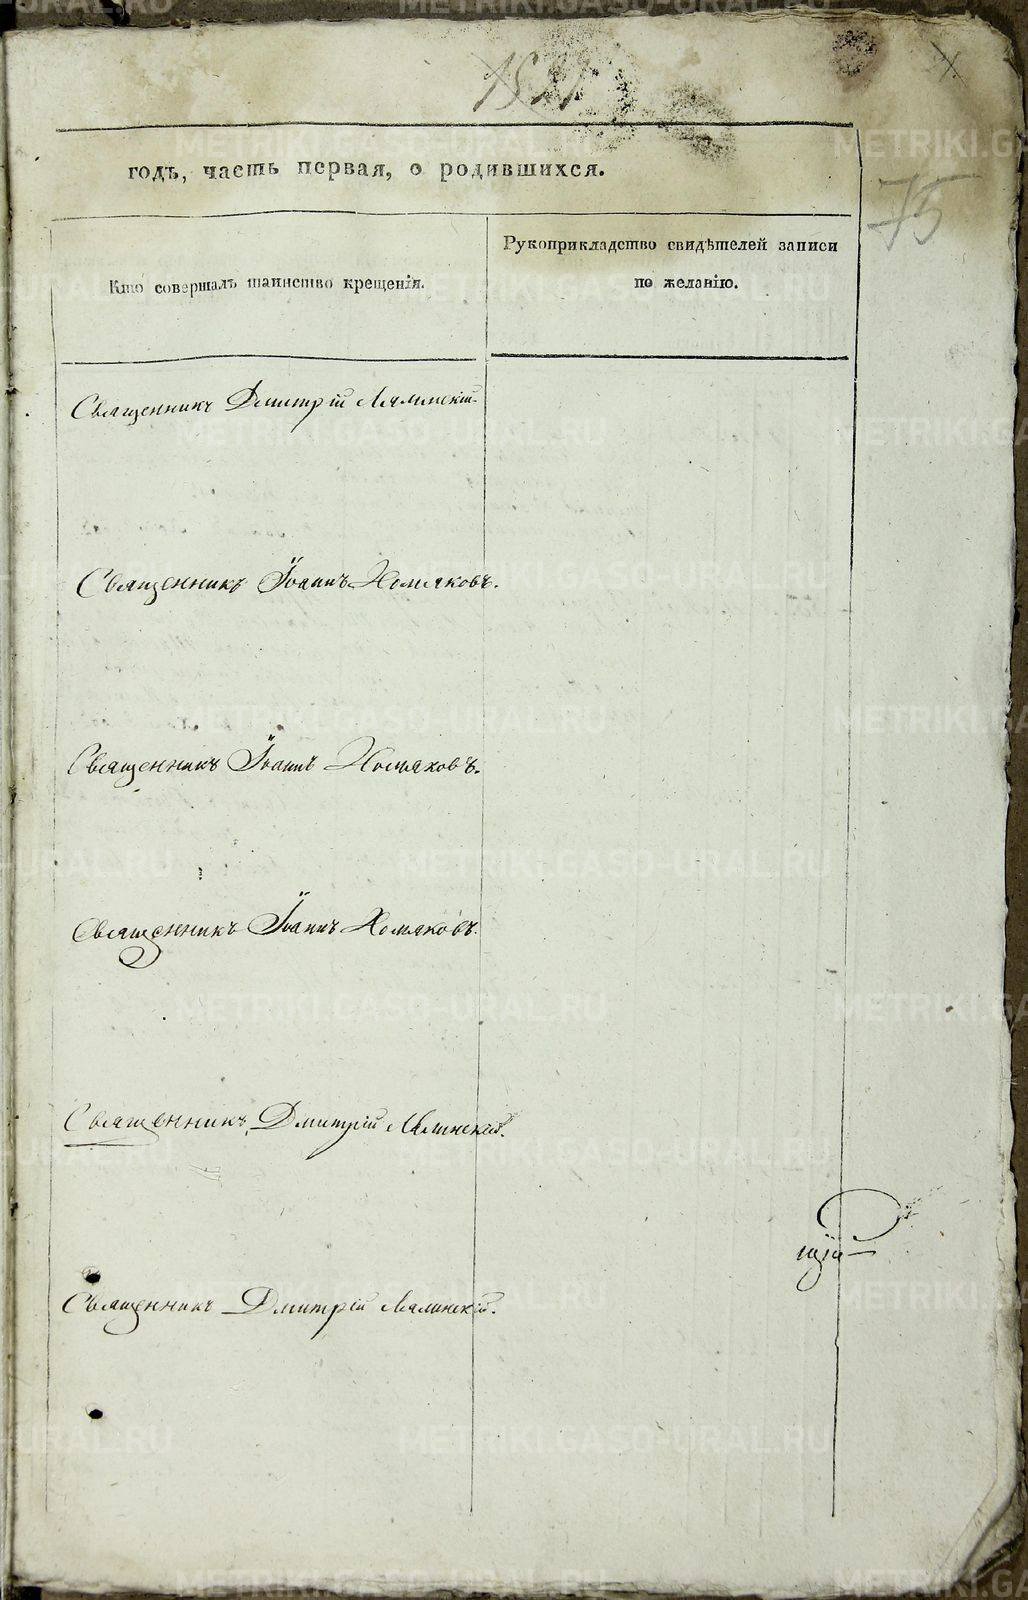 75
годъ, часть первая, о родившихся.
Кто совершалъ таинство крещенія.
Рукоприкладство свидѣтелей записи
по желанію.
Священникъ Дмитрій
Священникъ Іоаннъ Хомяковъ.
Священникъ Іоаннъ Хомяковъ.
Священникъ Іоаннъ Хомяковъ.
Священникъ Дмитрій
щій
Священникъ Дмитрій
METRIKI.GASO-URAL.RU